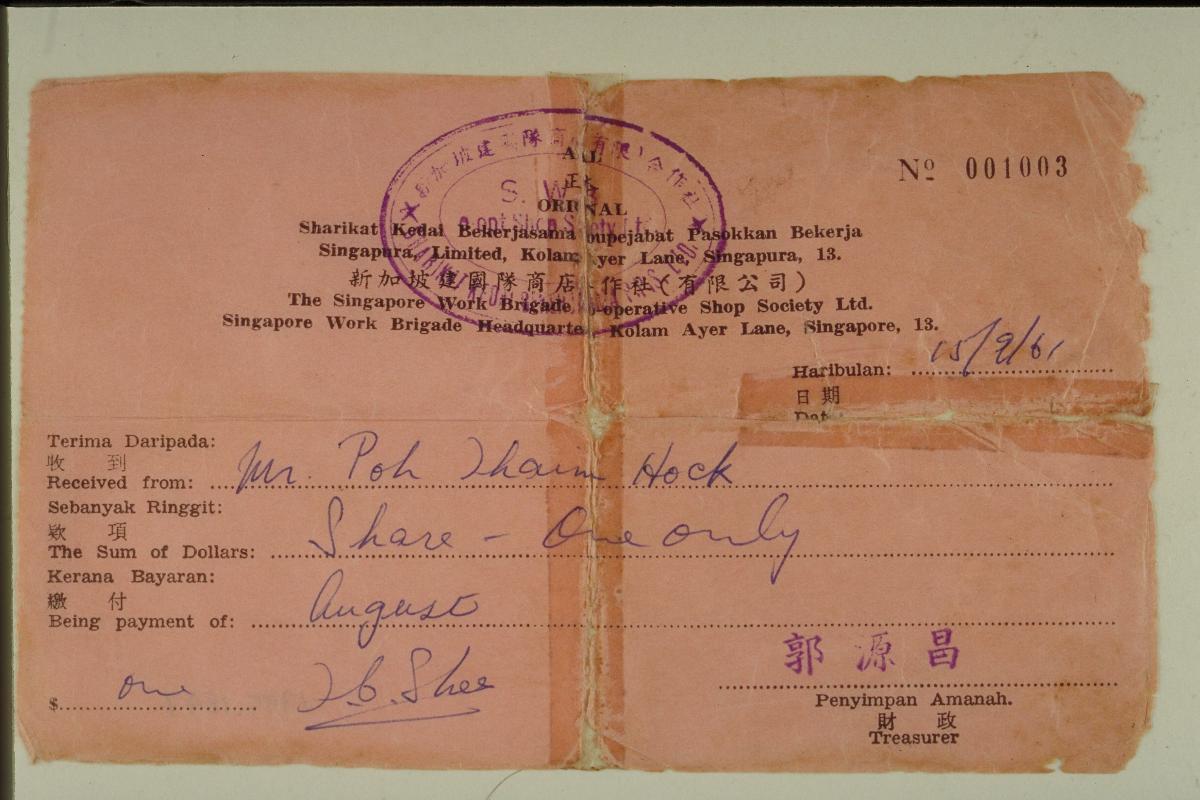 新加坡建國隊商店(有限)合作社
S. W.
Nº 001003
正本
Sharikat Kedai Bekerjasama Ibupejabat Pasokkan Bekerja
Singapura, Limited, Kolam Ayer Lane, Singapura, 13.
新加坡建國隊商店合作社(有限公司)
The Singapore Work Brigade Co-operative Shop Society Ltd.
Singapore Work Brigade Headquarters, Kolam Ayer Lane, Singapore, 13.
Haribulan: 15/9/61
日期
Date
Terima Daripada:
收到
Received from: Mr. Poh Thaim Hock
Sebanyak Ringgit:
欵項
The Sum of Dollars: Share - One only
Kerana Bayaran:
繳付
Being payment of: August
$ one
郭源昌
Penyimpan Amanah.
財政
Treasurer